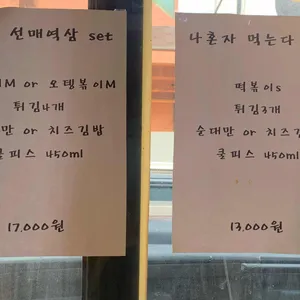 선매역삼 set
M or 오뎅볶이M
튀김4개
만 or 치즈김밥
쿨피스 450ml
17,000원
나혼자 먹는다
떡볶이s
튀김3개
순대만 or 치즈
쿨피스 450ml
13,000원